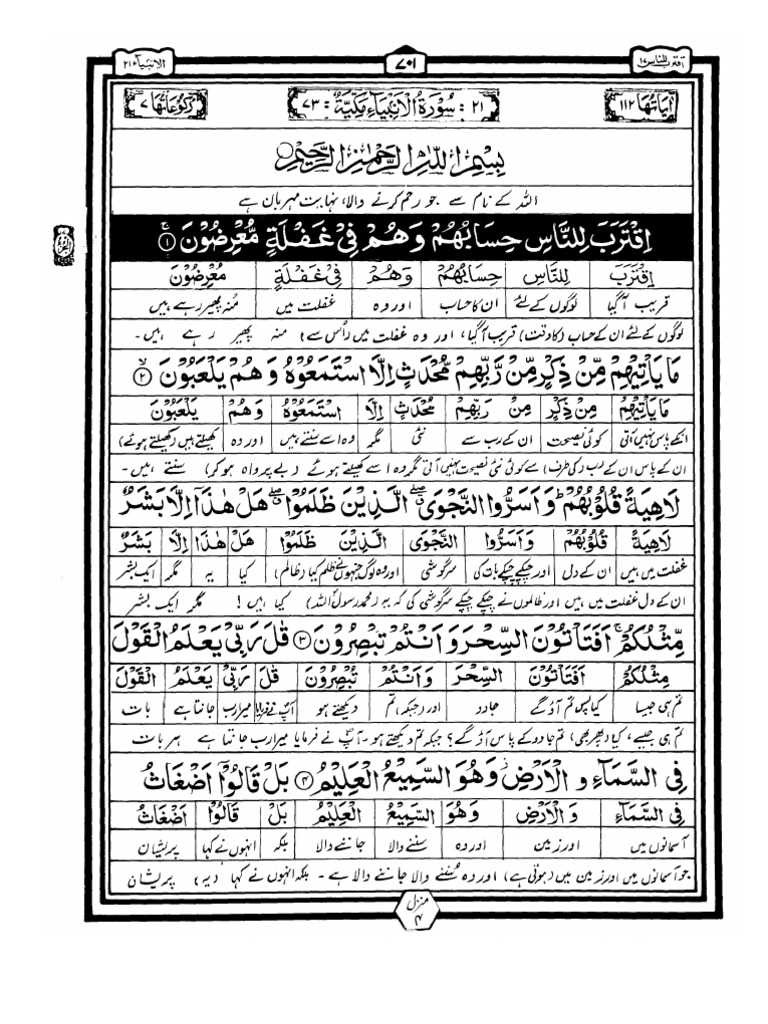 اقترب للناس ۱۷
۷۰۱
الانبیاء ۲۱
اٰیَاتُهَا ۱۱۲
۲۱ : سُوْرَةُ الْاَنْۢبِیَآءِ مَكِّیَّةٌ : ۷۳
رُكُوْعَاتُهَا ۷
بِسْمِ اللّٰهِ الرَّحْمٰنِ الرَّحِیْمِ
اللہ کے نام سے جو رحم کرنے والا، نہایت مہربان ہے
اِقْتَرَبَ لِلنَّاسِ حِسَابُهُمْ وَهُمْ فِیْ غَفْلَةٍ مُّعْرِضُوْنَ ۱
اِقْتَرَبَ لِلنَّاسِ حِسَابُهُمْ وَهُمْ فِیْ غَفْلَةٍ مُعْرِضُوْنَ
قریب آگیا لوگوں کے لئے ان کا حساب اور وہ غفلت میں مُنہ پھیر رہے ہیں
لوگوں کے لئے ان کے حساب (کا وقت) قریب آگیا، اور وہ غفلت میں (اُس سے) منہ پھیر رہے ہیں۔
مَا یَاْتِیْهِمْ مِّنْ ذِكْرٍ مِّنْ رَّبِّهِمْ مُّحْدَثٍ اِلَّا اسْتَمَعُوْهُ وَهُمْ یَلْعَبُوْنَ ۲
مَا یَاْتِیْهِمْ مِنْ ذِكْرٍ مِنْ رَبِّهِمْ مُحْدَثٍ اِلَّا اسْتَمَعُوْهُ وَهُمْ یَلْعَبُوْنَ
انکے پاس نہیں آتی کوئی نصیحت ان کے رب سے نئی مگر وہ اسے سنتے ہیں اور وہ کھیلتے ہیں (کھیلتے ہوئے)
ان کے پاس ان کے رب (کی طرف) سے کوئی نئی نصیحت نہیں آتی مگر وہ اسے کھیلتے ہوئے (بے پرواہ ہو کر) سنتے ہیں۔
لَاهِیَةً قُلُوْبُهُمْ وَاَسَرُّوا النَّجْوَی الَّذِیْنَ ظَلَمُوْا هَلْ هٰذَاۤ اِلَّا بَشَرٌ
لَاهِیَةً قُلُوْبُهُمْ وَاَسَرُّوا النَّجْوَی الَّذِیْنَ ظَلَمُوْا هَلْ هٰذَا اِلَّا بَشَرٌ
غفلت میں ہیں ان کے دل اور چپکے چپکے بات کی سرگوشی اور وہ لوگ جنہوں نے ظلم کیا (ظالم) کیا یہ مگر ایک بشر
ان کے دل غفلت میں ہیں اور ظالموں نے چپکے چپکے سرگوشی کی کہ یہ (محمد رسول اللہ) کیا ہیں! مگر ایک بشر
مِّثْلُكُمْ اَفَتَاْتُوْنَ السِّحْرَ وَاَنْتُمْ تُبْصِرُوْنَ ۳ قٰلَ رَبِّیْ یَعْلَمُ الْقَوْلَ
مِثْلُكُمْ اَفَتَاْتُوْنَ السِّحْرَ وَاَنْتُمْ تُبْصِرُوْنَ قٰلَ رَبِّیْ یَعْلَمُ الْقَوْلَ
تم ہی جیسا کیا پس تم آؤ گے جادو اور (جبکہ) تم دیکھتے ہو آپؐ نے فرمایا میرا رب جانتا ہے بات
تم ہی جیسے، کیا (پھر بھی) تم جادو کے پاس آؤ گے؟ جبکہ تم دیکھتے ہو۔ آپؐ نے فرمایا میرا رب جانتا ہے ہر بات
فِی السَّمَآءِ وَ الْاَرْضِ وَهُوَ السَّمِیْعُ الْعَلِیْمُ ۴ بَلْ قَالُوْۤا اَضْغَاثُ
فِی السَّمَآءِ وَ الْاَرْضِ وَهُوَ السَّمِیْعُ الْعَلِیْمُ بَلْ قَالُوْا اَضْغَاثُ
آسمانوں میں اور زمین اور وہ سننے والا جاننے والا بلکہ انہوں نے کہا پریشان
جو آسمانوں میں اور زمین میں (ہوتی ہے) اور وہ سُننے والا جاننے والا ہے۔ بلکہ انہوں نے کہا (یہ) پریشان
منزل ۴